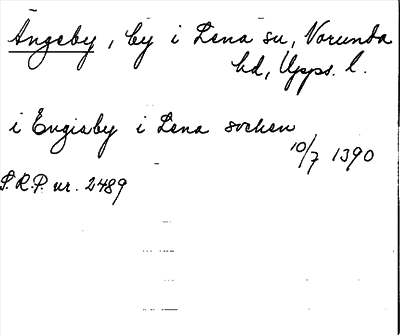 Ängeby, by i Lena sn, Norunda
hd, Upps. l.
i Engisby i Lena socken
10/7 1390
S.R.P. nr. 2489